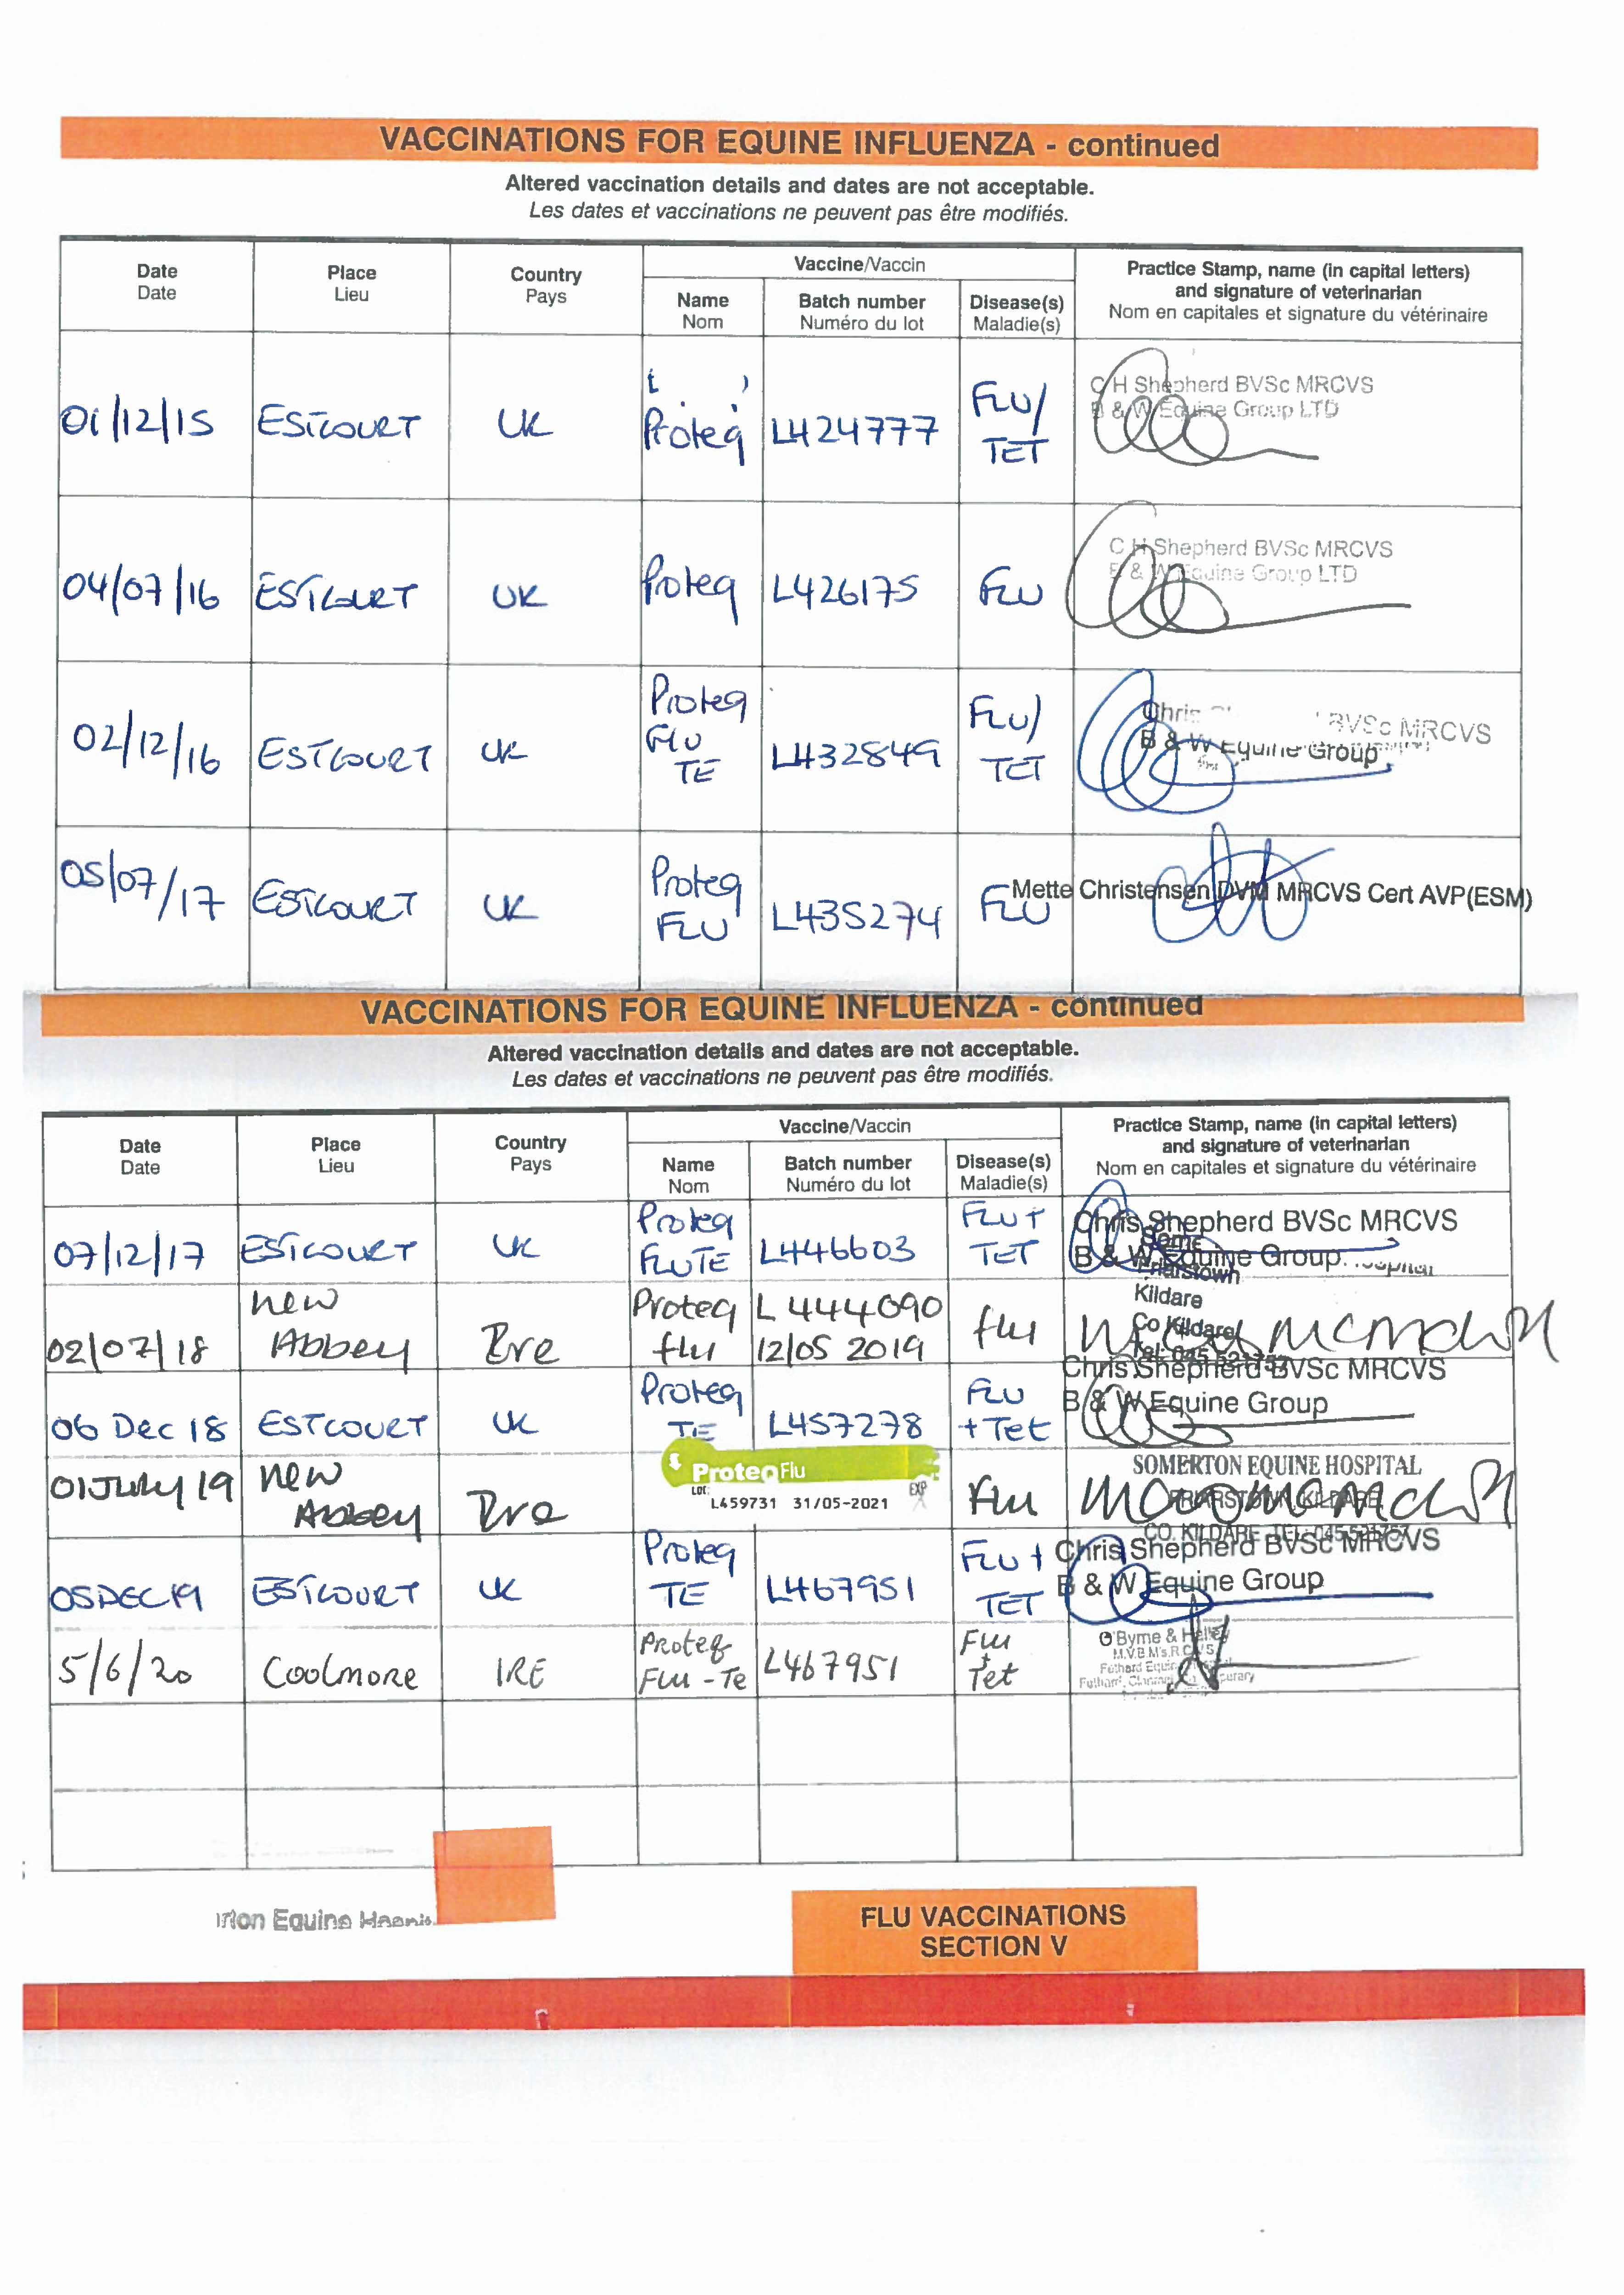 VACCINATIONS FOR EQUINE INFLUENZA - continued
Altered vaccination details and dates are not acceptable.
Les dates et vaccinations ne peuvent pas être modifiés.
Date Place Country Vaccine/Vaccin Practice Stamp, name (in capital letters)
Date Lieu Pays and signature of veterinarian
Name Batch number Disease(s) Nom en capitales et signature du vétérinaire
Nom Numéro du lot Maladie(s)
01/12/15 ESTCOURT UK Proteq L424777 FLU/ TET
C H Shepherd BVSc MRCVS
B & W Equine Group LTD
04/07/16 ESTCOURT UK Proteq L426175 FLU
C H Shepherd BVSc MRCVS
B & W Equine Group LTD
02/12/16 ESTCOURT UK Proteq FLU TE L432849 FLU/ TET
Chris BVSc MRCVS
B & W Equine Group
05/07/17 ESTCOURT UK Proteq FLU L435274 FLU
Mette Christensen DVM MRCVS Cert AVP(ESM)
VACCINATIONS FOR EQUINE INFLUENZA - continued
Altered vaccination details and dates are not acceptable.
Les dates et vaccinations ne peuvent pas être modifiés.
Date Place Country Vaccine/Vaccin Practice Stamp, name (in capital letters)
Date Lieu Pays and signature of veterinarian
Name Batch number Disease(s) Nom en capitales et signature du vétérinaire
Nom Numéro du lot Maladie(s)
07/12/17 ESTCOURT UK Proteq FLUTE L446603 FLU + TET
Chris Shepherd BVSc MRCVS
B & W Equine Group
02/07/18 new Abbey Ire Proteq flu L444090 12/05 2019 flu
Friarstown
Kildare
Co Kildare
06 Dec 18 ESTCOURT UK Proteq TE L457278 FLU + Tet
Chris Shepherd BVSc MRCVS
B & W Equine Group
01 July 19 new Abbey Ire
ProteqFlu
Lot: EXP
L459731 31/05-2021
flu
SOMERTON EQUINE HOSPITAL
FRIARSTOWN, KILDARE,
CO. KILDARE TEL: 045 521757
05 DEC 19 ESTCOURT UK Proteq TE L467951 FLU + TET
Chris Shepherd BVSc MRCVS
B & W Equine Group
5/6/20 Coolmore IRE Proteq Flu - Te L467951 Flu + Tet
O'Byrne & Halley
M.V.B.M's.R.C.V.S
Fethard Equine
FLU VACCINATIONS
SECTION V